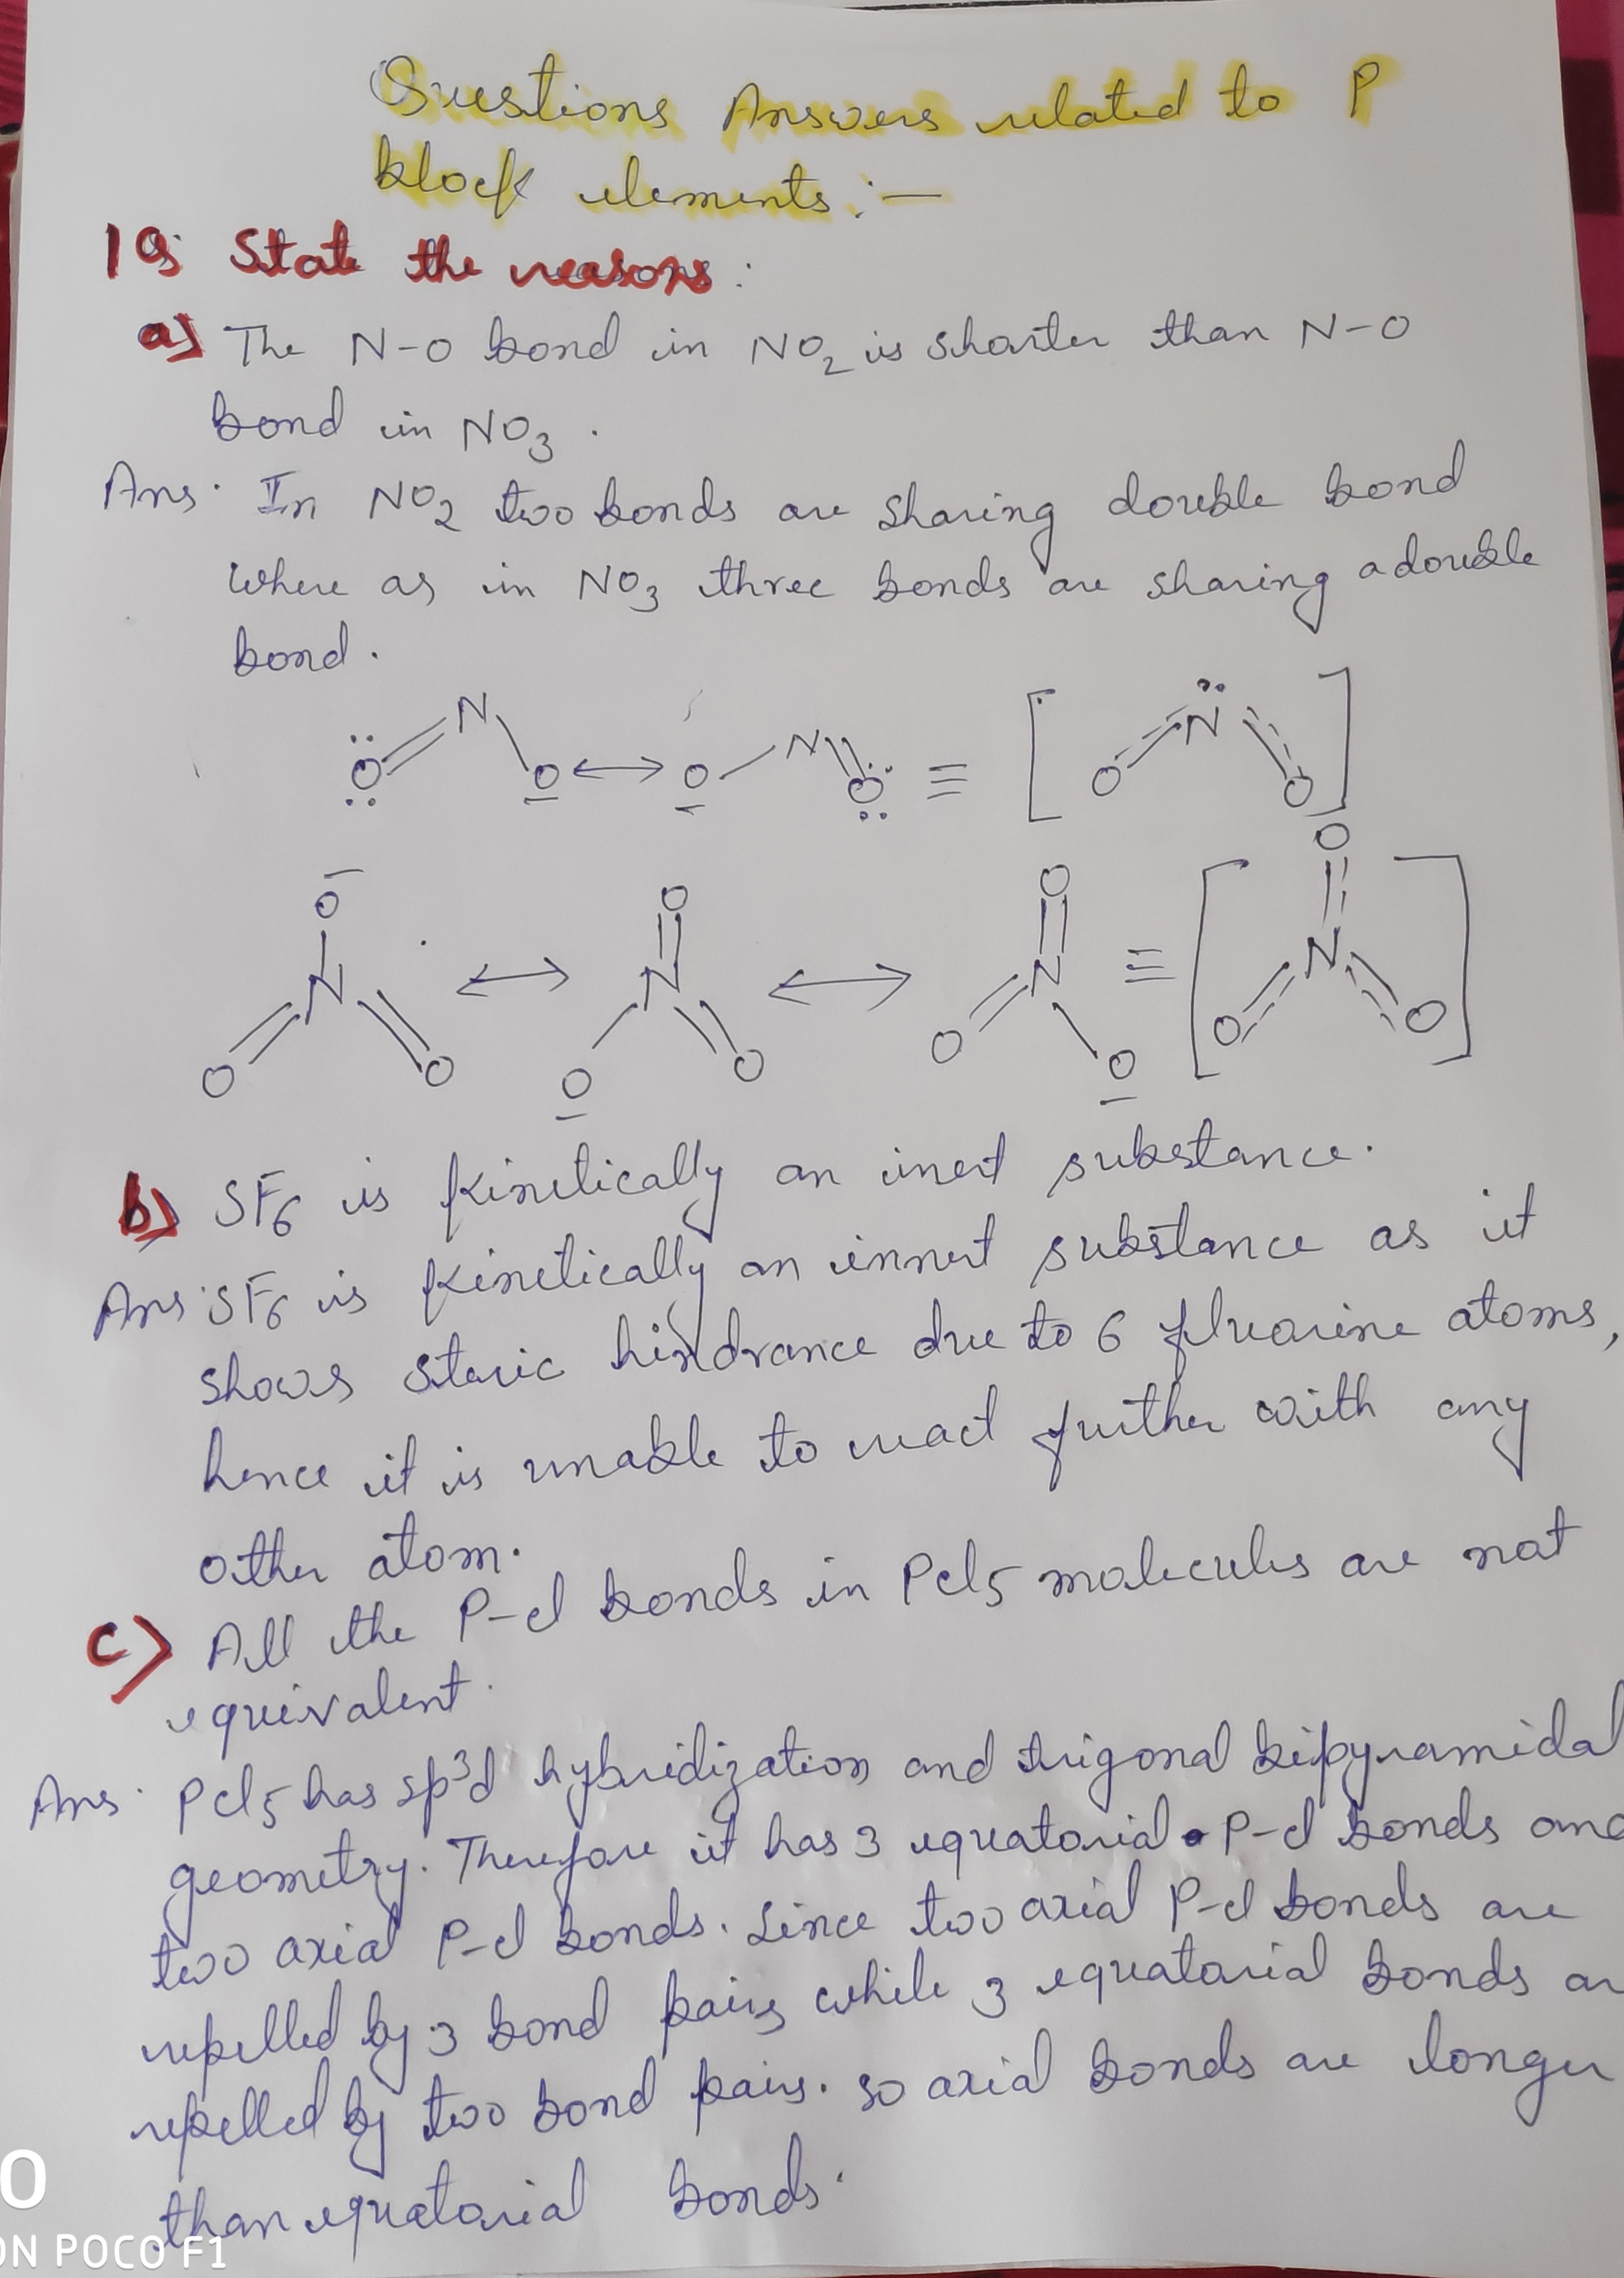 Questions Answers related to P
block elements :-
1Q. State the reasons :
a) The N-O bond in NO2 is shorter than N-O
bond in NO3 .
Ans. In NO2 two bonds are sharing double bond
where as in NO3 three bonds are sharing a double
bond .
O = N - O ↔ O - N = O ≡ [ O N O ]
O O O O
N ↔ N ↔ N ≡ [ N ]
O O O O O O O O
b) SF6 is kinetically an inert substance.
Ans. SF6 is kinetically an innert substance as it
shows steric hindrance due to 6 fluorine atoms,
hence it is unable to react further with any
other atom.
c) All the P-Cl bonds in PCl5 molecules are not
equivalent.
Ans. PCl5 has sp3d hybridization and trigonal bipyramidal
geometry. Therefore it has 3 equatorial P-Cl bonds and
two axial P-Cl bonds. Since two axial P-Cl bonds are
repelled by 3 bond pairs while 3 equatorial bonds ar
repelled by two bond pairs. so axial bonds are longer
than equatorial bonds.
O
ON POCO F1